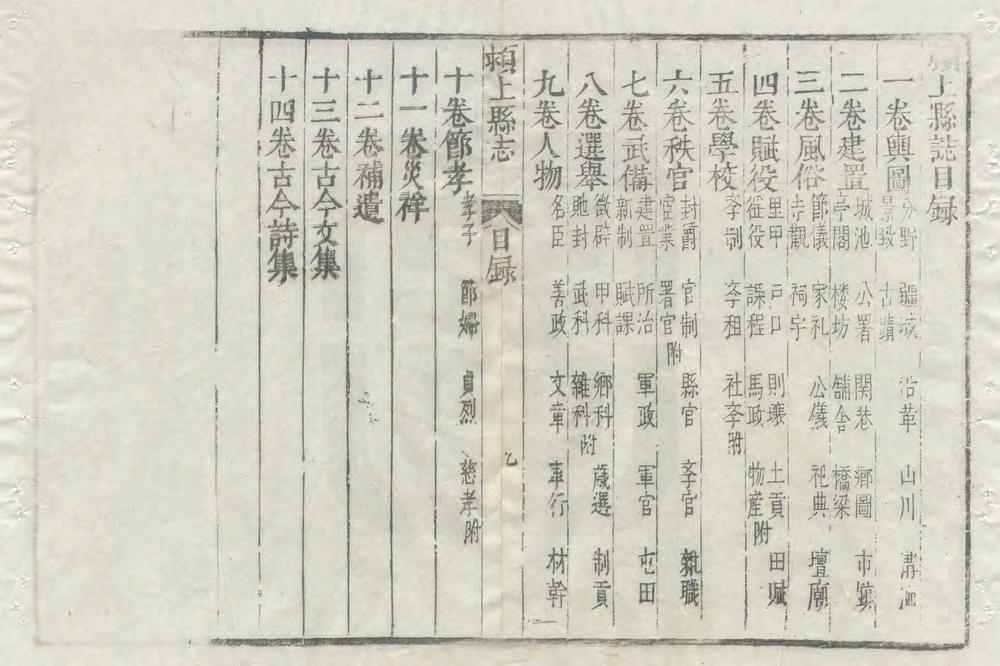 上縣誌目録
一卷輿圖 分野 疆域 沿革 山川 溝洫
景致 古蹟
二卷建置 城池 公署 関巷 鄉圖 市鎮
亭閣 楼坊 舖舍 橋梁
三卷風俗 節儀 家礼 公儀 祀典 壇廟
寺觀 祠宇
四卷賦役 里甲 戸口 則壤 土貢 田賦
徭役 課程 馬政 物産附
五卷學校 斈制 斈租 社斈附
六卷秩官 封爵 官制 縣官 斈官 雜職
宦業 署官附
七卷武備 建置 所治 軍政 軍官 屯田
新制 賦課
八卷選舉 徵辟 甲科 鄉科 歲選 制貢
貤封 武科 雜科附
九卷人物 名臣 善政 文章 事行 材幹
頴上縣志 目録 乙
十卷節孝 孝子 節婦 貞烈 慈孝附
十一卷災祥
十二卷補遺
十三卷古今文集
十四卷古今詩集